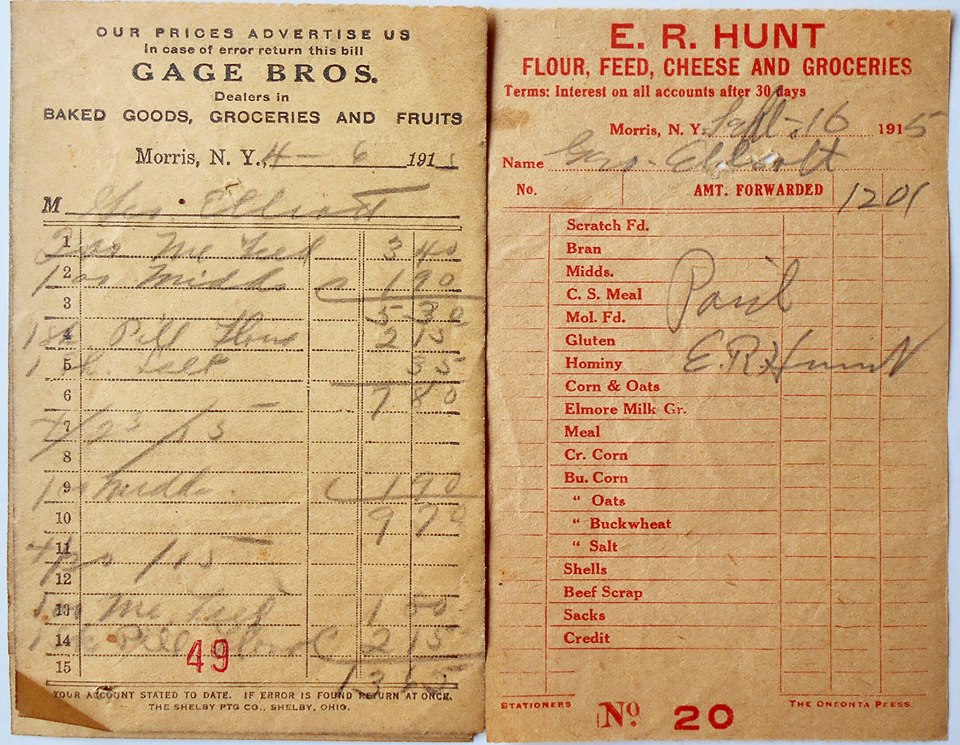 OUR PRICES ADVERTISE US
In case of error return this bill
GAGE BROS.
Dealers in
BAKED GOODS, GROCERIES AND FRUITS
Morris, N. Y., 4 - 6 191
M Elliott
1 Me Feed 3 40
2 Midds 1 90
3 5 30
4 Pill 2 15
5 Salt 35
6 7 80
7 4/23/15
8
9 Midds 1 90
10 9 70
11 /15
12
13 Me Feed 1
14 Pill 2 15
49
15 13
YOUR ACCOUNT STATED TO DATE. IF ERROR IS FOUND RETURN AT ONCE.
THE SHELBY PTG CO., SHELBY, OHIO.
E. R. HUNT
FLOUR, FEED, CHEESE AND GROCERIES
Terms: Interest on all accounts after 30 days
Morris, N. Y. Sept - 16 1915
Name Geo. Elliott
No. AMT. FORWARDED 1201
Scratch Fd.
Bran
Midds.
C. S. Meal
Paid
Mol. Fd.
Gluten
Hominy
E.R. Hunt
Corn & Oats
Elmore Milk Gr.
Meal
Cr. Corn
Bu. Corn
“ Oats
“ Buckwheat
“ Salt
Shells
Beef Scrap
Sacks
Credit
STATIONERS
No 20
THE ONEONTA PRESS